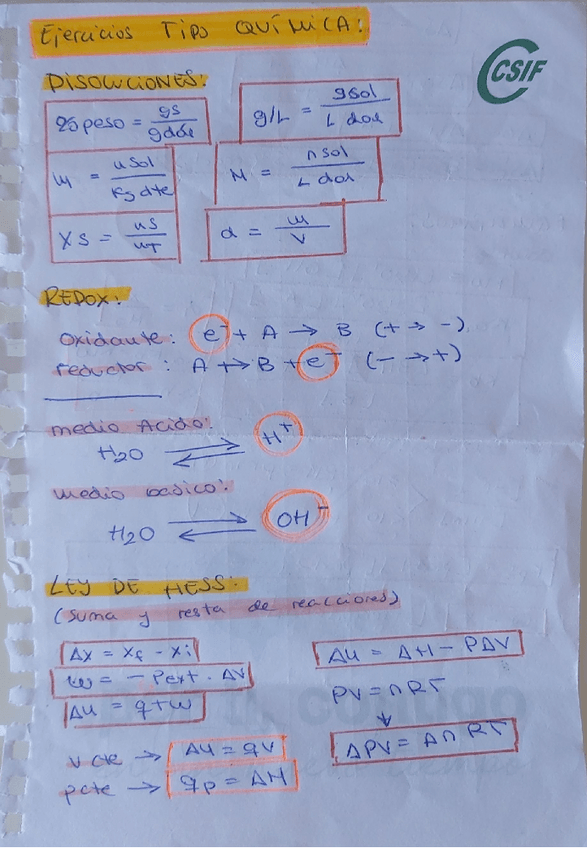 Ejercicios TIPO QUÍMICA:
CSIF
DISOLUCIONES:
% peso = gs / gdos
g/L = gsol / L dos
m = nsol / Kg dte
M = nsol / L dos
Xs = ns / nT
d = m / V
REDOX:
Oxidante: e⁻ + A → B (+ → -)
reductor: A → B + e⁻ (- → +)
medio Acido:
H2O ⇌ H⁺
medio basico:
H2O ⇌ OH⁻
LEY DE HESS:
(suma y resta de reacciones)
Δx = xf - xi
w = - Pext · ΔV
Δu = q + w
V cte → Δu = qv
pcte → qp = ΔH
Δu = ΔH - PΔV
PV = nRT
↓
ΔPV = Δn RT